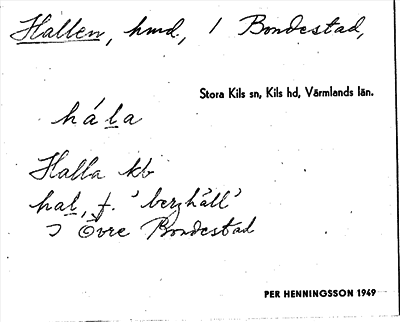 Hallen, hmd, / Bondestad,
Stora Kils sn, Kils hd, Värmlands län.
hála
Halla kb
hal, f. 'berghäll'
Övre Bondestad
PER HENNINGSSON 1949